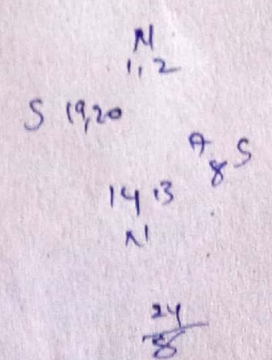 N
1, 2
S 19,20
A
8 S
14 13
N
24
8